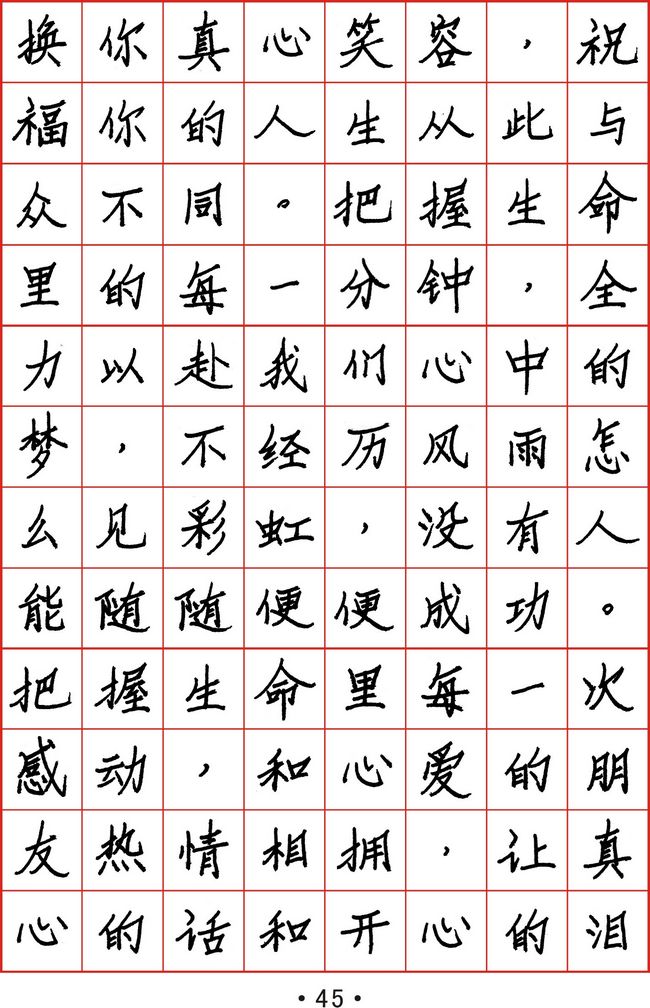 换你真心笑容，祝
福你的人生从此与
众不同。把握生命
里的每一分钟，全
力以赴我们心中的
梦，不经历风雨怎
么见彩虹，没有人
能随随便便成功。
把握生命里每一次
感动，和心爱的朋
友热情相拥，让真
心的话和开心的泪
·45·